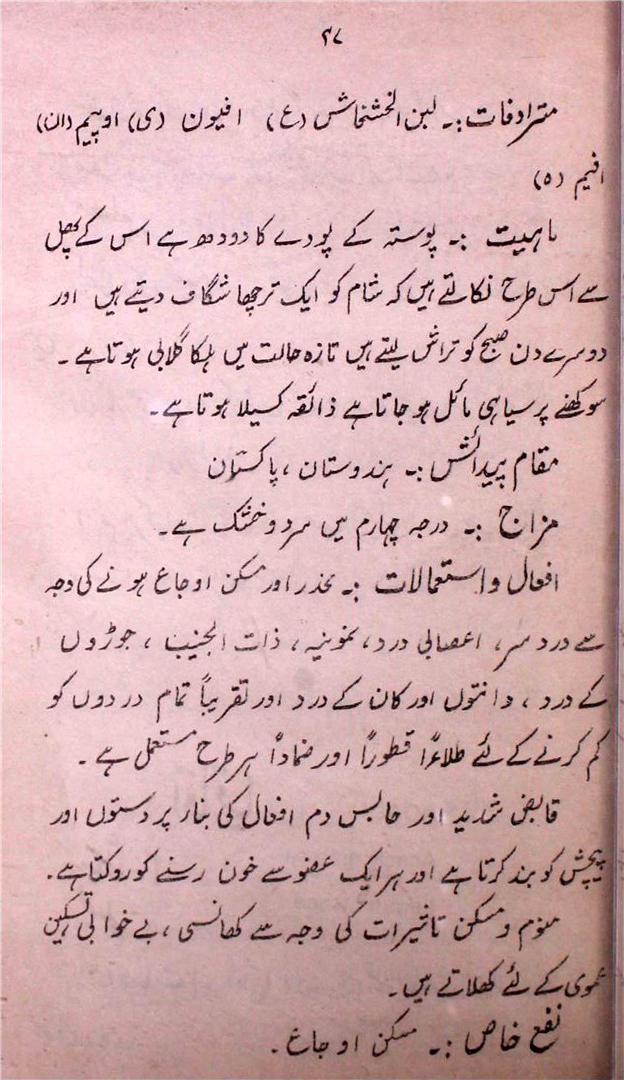 ۴۷
مترادفات :۔ لبن الخشخاش (ع) افیون (ی) اوپیم (ان)
افیم (ہ)
ماہیت :۔ پوستہ کے پودے کا دودھ ہے اس کے پھل
سے اس طرح نکالتے ہیں کہ شام کو ایک ترچھا شگاف دیتے ہیں اور
دوسرے دن صبح کو تراش لیتے ہیں تازہ حالت میں ہلکا گلابی ہوتا ہے ۔
سوکھنے پر سیاہی مائل ہو جاتا ہے ذائقہ کسیلا ہوتا ہے ۔
مقام پیدائش :۔ ہندوستان ، پاکستان
مزاج :۔ درجہ چہارم میں سرد و خشک ہے ۔
افعال و استعمالات :۔ مخدر اور مسکن اوجاع ہونے کی وجہ
سے درد سر ، اعصابی درد ، نمونیہ ، ذات الجنب ، جوڑوں
کے درد ، دانتوں اور کان کے درد اور تقریباً تمام دردوں کو
کم کرنے کے لئے طلاءً قطوراً اور ضماداً ہر طرح مستعمل ہے ۔
قابض شدید اور حابس دم افعال کی بناء پر دستوں اور
پیچش کو بند کرتا ہے اور ہر ایک عضو سے خون رسنے کو روکتا ہے ۔
منوم و مسکن تاثیرات کی وجہ سے کھانسی ، بے خوابی تسکین
عمومی کے لئے کھلاتے ہیں ۔
نفع خاص :۔ مسکن اوجاع ۔